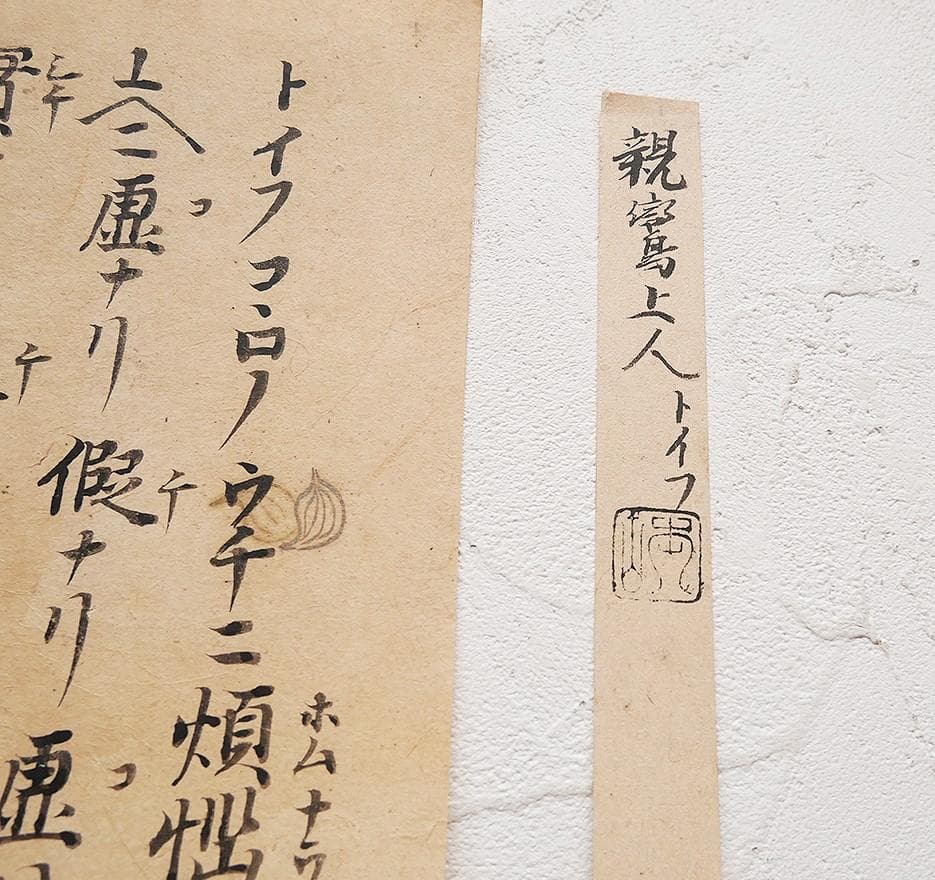 親鸞上人トイフ
トイフコヽロノウチニ煩惱
ホムナウ
ユヘニ虚ナリ假ナリ虚
コ
ケ
コ